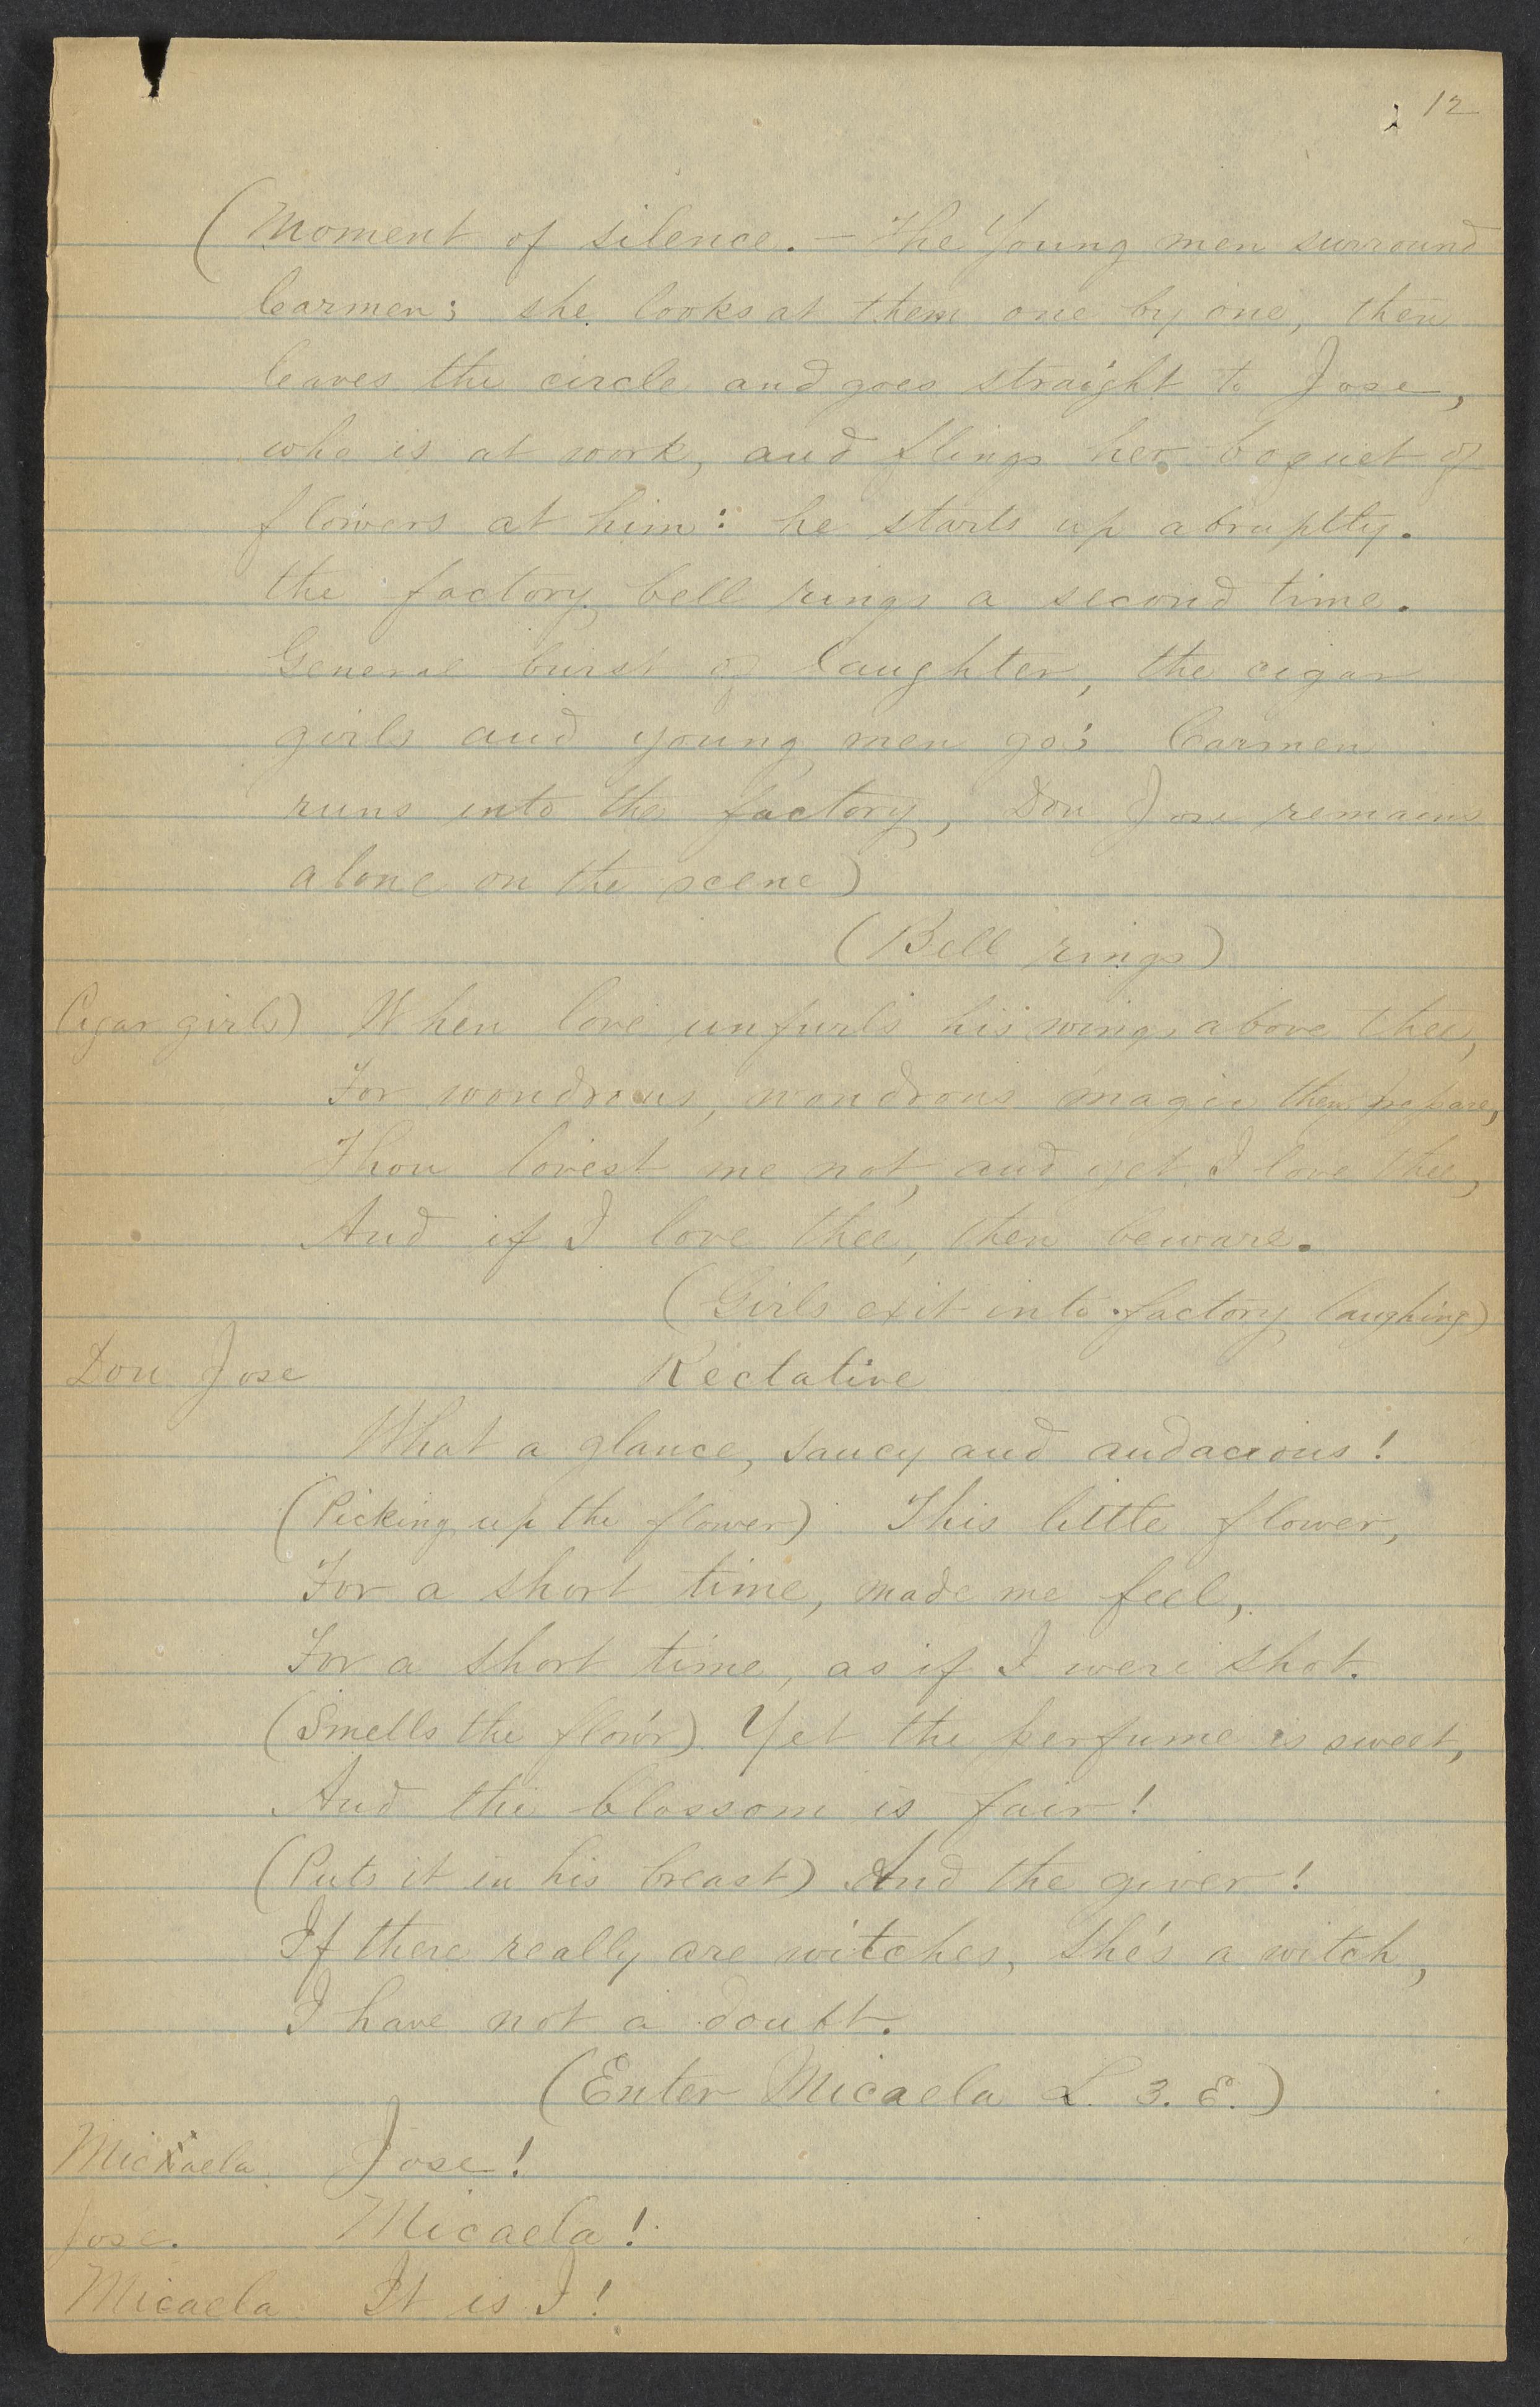 12
(Moment of silence. — The Young men surround
Carmen; she looks at them one by one, then
leaves the circle and goes straight to Jose,
who is at work, and flings her boquet of
flowers at him: he starts up abruptly.
the factory bell rings a second time.
General burst of laughter, the cigar
girls and young men go; Carmen
runs into the factory, Don Jose remains
alone on the scene)
(Bell rings)
Cigar girls) When love unfurls his wings above thee,
For wondrous, wondrous magic then prepare,
Thou lovest me not, and yet I love thee,
And if I love thee, then beware.
(Girls exit into factory laughing)
Don Jose Rectative
What a glance, saucy and audacious!
(Picking up the flower) This little flower,
For a short time, made me feel,
For a short time, as if I were shot.
(Smells the flow'r) Yet the perfume is sweet,
And the blossom is fair!
(Puts it in his breast) And the giver!
If there really are witches, she's a witch,
I have not a doubt.
(Enter Micaela L. 3. E.)
Micaela Jose!
Jose. Micaela!
Micaela It is I!